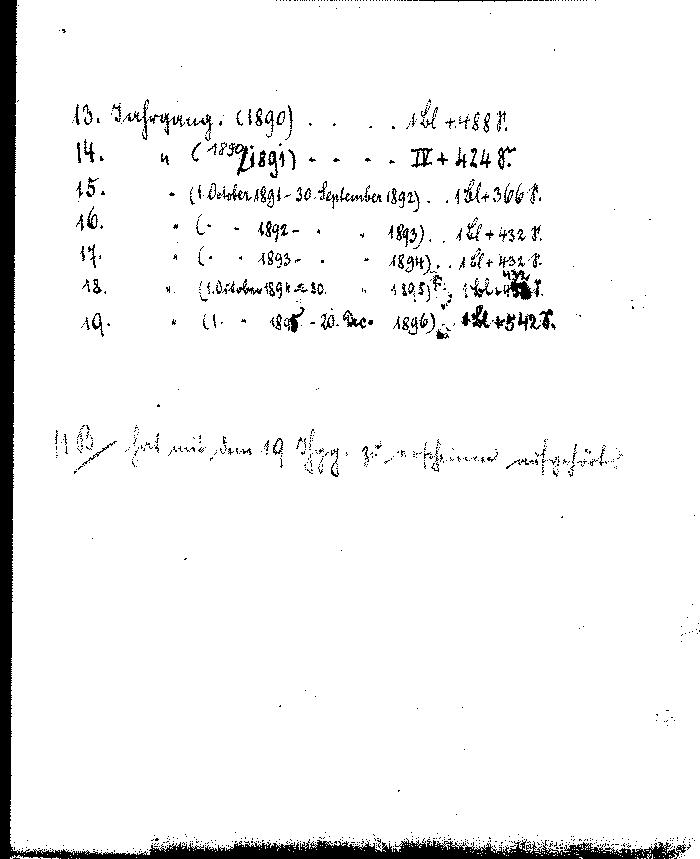 13. Jahrgang. (1890) . . . . . 1 Bl + 488 S.
14. " (1890/1891) . . . . IV + 424 S.
15. " (1. October 1891 - 30. September 1892) . . 1 Bl + 366 S.
16. " ( " " 1892 - " " 1893) . . 1 Bl + 432 S.
17. " ( " " 1893 - " " 1894) . . 1 Bl + 432 S.
18. " (1. October 1894 - 30. " 1895) . . 1 Bl + 432 S.
19. " (1. " 1895 - 20. Dec. 1896) . . 1 Bl + 542 S.
NB/ hat mit dem 19 Jhgg. zu erscheinen aufgehört